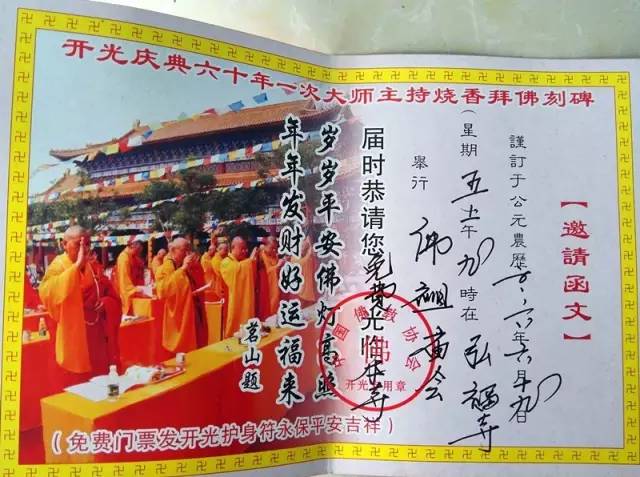 开光庆典六十年一次大师主持烧香拜佛刻碑
【邀請函文】
謹訂于公元農歷二〇一六年六月九日
（星期五上午九時在弘福寺
舉行佛祖庙会
届时恭请您免费光临本寺
岁岁平安佛灯高照
年年发财好运福来
茗山题
中国佛教协会
佛
开光专用章
（免费门票发开光护身符永保平安吉祥）